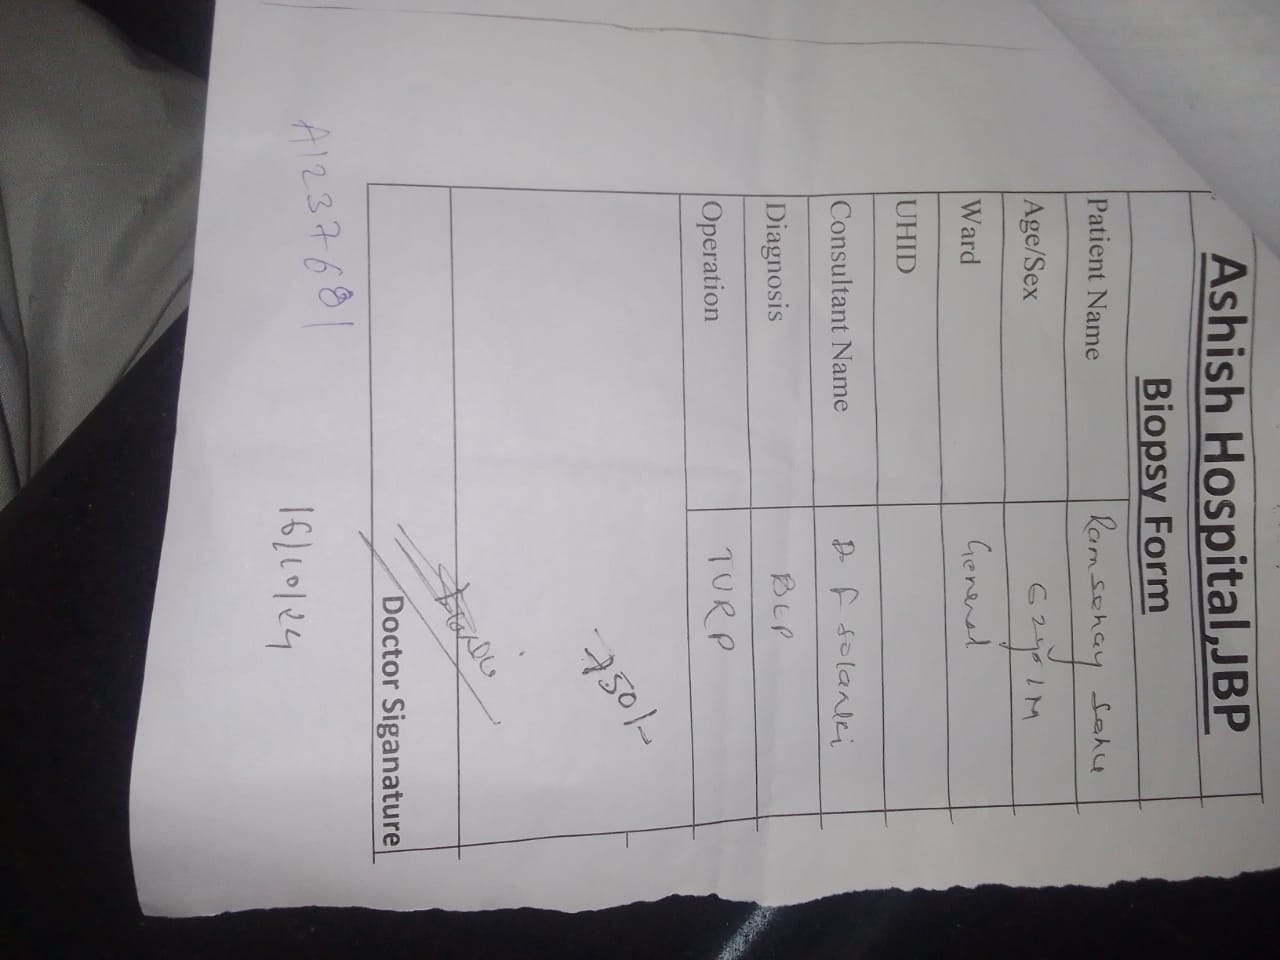 Ashish Hospital,JBP
Biopsy Form
Patient Name Ramsehay Sahu
Age/Sex 62yo/M
Ward General
UHID
Consultant Name Dr F Solanki
Diagnosis
Operation TURP
750/-
Doctor Siganature
A1237681 16/10/24